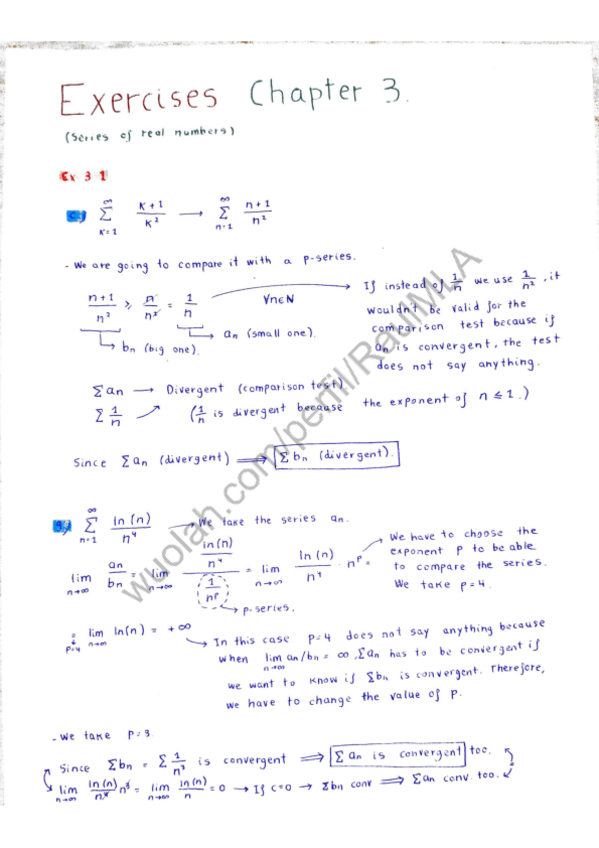 Exercises Chapter 3.
(series of real numbers)
Ex 3 1
c) ∑_{k=1}^{∞} (k+1)/k² → ∑_{n=1}^{∞} (n+1)/n²
- We are going to compare it with a p-series.
(n+1)/n² ≥ n/n² = 1/n ∀n∈N → If instead of 1/n we use 1/n², it
wouldn't be valid for the
comparison test because if
an is convergent, the test
does not say anything.
↳ bn (big one). ↳ an (small one).
∑an → Divergent (comparison test).
∑ 1/n ↗ (1/n is divergent because the exponent of n ≤ 1.)
Since ∑an (divergent) ⟹ ∑bn (divergent).
g) ∑_{n=1}^{∞} ln(n)/n⁴ → We take the series an.
lim_{n→∞} an/bn = lim_{n→∞} (ln(n)/n⁴)/(1/nᵖ) = lim_{n→∞} ln(n)/n⁴ · nᵖ =
→ We have to choose the
exponent p to be able
to compare the series.
We take p=4.
↳ p-series.
= p=4 lim_{n→∞} ln(n) = +∞
↳ In this case p=4 does not say anything because
when lim_{n→∞} an/bn = ∞, ∑an has to be convergent if
we want to know if ∑bn is convergent. Therefore,
we have to change the value of p.
- We take p=3.
Since ∑bn = ∑ 1/n³ is convergent ⟹ ∑an is convergent too.
lim_{n→∞} ln(n)/n⁴ n³ = lim_{n→∞} ln(n)/n = 0 → If c=0 → ∑bn conv ⟹ ∑an conv. too.
wuolah.com/perfil/RaulMLA